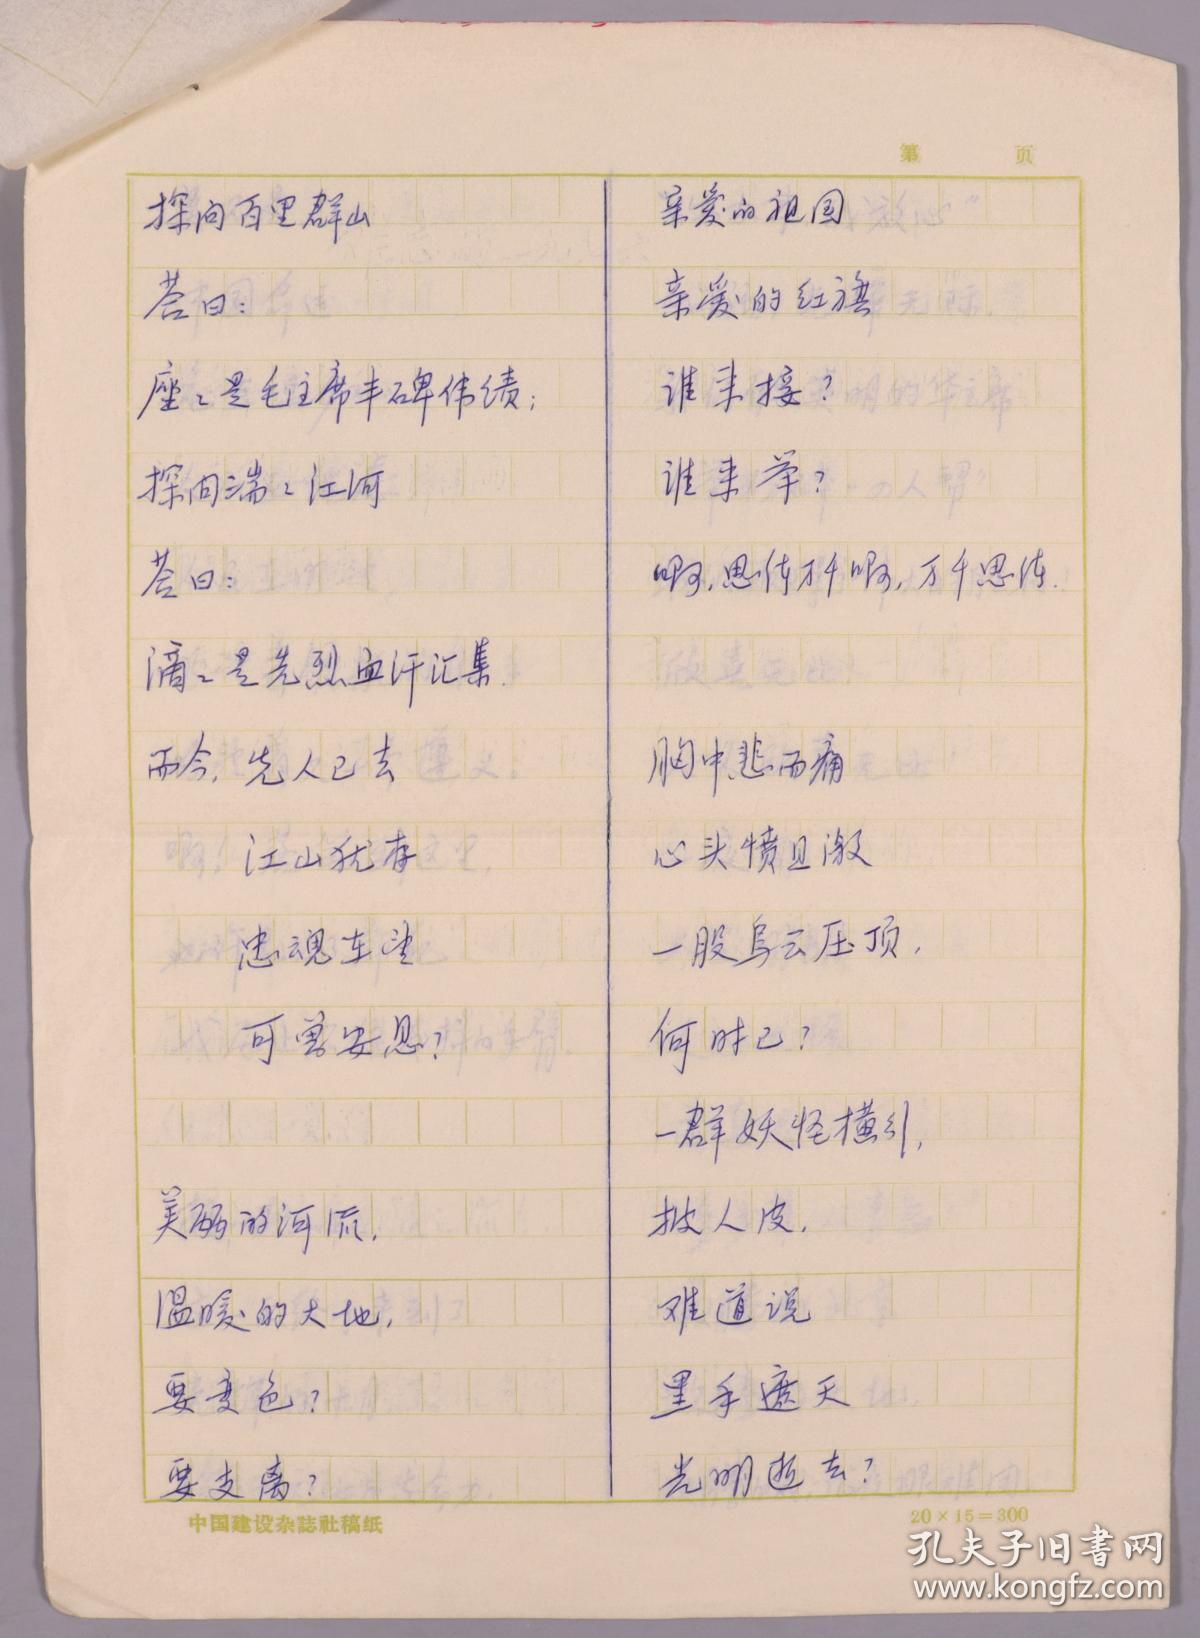 第 页
探问百里群山
荅曰:
座〻是毛主席丰碑伟绩;
探问湍〻江河
荅曰:
滴〻是先烈血汗汇集.
而今,先人已去
江山犹存
忠魂在望
可曾安息?
美丽的河流,
温暖的大地,
要变色?
要支离?
亲爱的祖国
亲爱的红旗
谁来接?
谁来举?
啊,思绪万千啊,万千思绪.
胸中悲而痛
心头愤且激
一股乌云压顶,
何时已?
一群妖怪横引,
披人皮,
难道说
黑手遮天
光明逝去?
中国建设杂誌社稿纸
20×15=300
孔夫子旧书网
www.kongfz.com